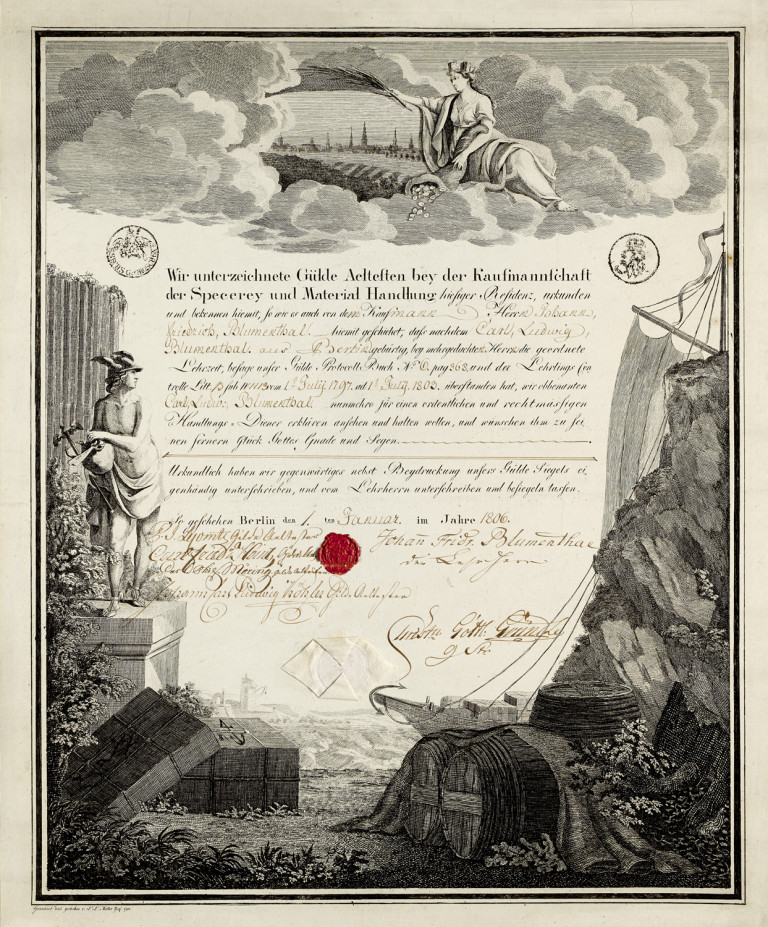 Wir unterzeichnete Gülde Aeltesten bey der Kaufmannschaft
der Specerey und Material Handlung hiesiger Residenz, urkunden
und bekennen hiemit, so wie es auch von dem Kaufmann Herrn Johann
Friedrich, Blumenthal. hiemit geschiehet, daß nachdem Carl, Ludwig,
Blumenthal. aus Berlin gebürtig, bey mehrgedachten Herrn die geordnete
Lehrzeit, besage unser Gülde Protocoll Buch pag 368. und der Lehrlings Con
trolle Litt. B sub No 1113 vom 1t July 1797. ad 1t July 1803. überstanden hat, wir obbenannten
Carl, Ludw, Blumenthal. nunmehro für einen ordentlichen und rechtmässigen
Handlungs-Diener erklären ansehen und halten wollen, und wünschen ihm zu sei
nen fernern Glück Gottes Gnade und Segen.
Urkundlich haben wir gegenwärtiges nebst Beydruckung unsers Gülde Siegels ei
genhändig unterschrieben, und vom Lehrherrn unterschreiben und besiegeln lassen.
So geschehen Berlin den 1. ten Januar. im Jahre 1806.
Gilde Aeltester
Johan. Fridr. Blumenthal
der Lehrherr
Johann Carl Ludwig Köhler Gild. Aeltester
Gottl.